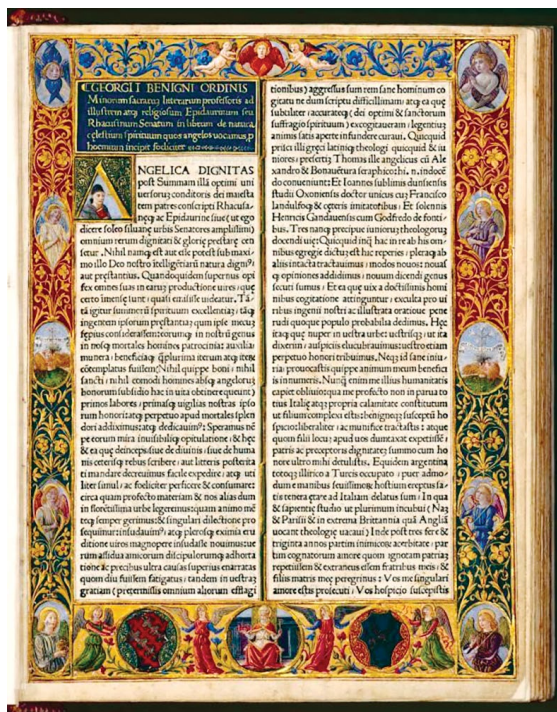 GEORGII BENIGNI ORDINIS
Minorum sacraꝝ litterarum professoris ad
illustrem atqꝫ religiosum Epidaurium seu
Rhacusinum Senatum in librum de natura
cęlestium spirituum quos angelos vocamus, p
hoemium incipit foeliciter
ANGELICA DIGNITAS
post Summam illā optimi uni
uersorū conditoris dei maiesta
tem patres conscripti Rhacusa-
neꝗ ac Epidaurine siue (ut ego
dicere soleo siluanę urbis Senatores amplissimi)
omnium rerum dignitati & glorię pręstare cen
setur. Nihil namqꝫ est aut esse potest sub maxi-
mo illo Deo nostro intelligētiarū natura digniꝰ
aut pręstantius. Quandoquidem supernus opi
fex omnes suas in earū productione uires
certo immēsę sunt
tā igitur summorū spirituum excellentiā
ingentem ipsorum pręstantiā quom ipse mecū
sępius considerassem
in mortales homines patrocinia: auxilia
munera beneficiaqꝫ qꝫplurima iterum atqꝫ iterū
cōtemplatus fuissem. Nihil quippe boni nihil
sancti nihil comodi homines absqꝫ angeloruꝫ
bonorum subsidio hac in uita obtinere queunt
primos labores primasqꝫ uigilias nostras ipso
rum honori atqꝫ perpetuo apud mortales splen
dori addiximus: atqꝫ dedicauimꝰ. Speramus nē
pe eorum mira inuisibiliqꝫ opitulatione & hęc
& ea quę deinceps siue de diuinis siue de huma
nis ceterisqꝫ rebus scribere aut literis posterita
ti mandare decreuimus facile expedire: atqꝫ uti
liter simul ac foeliciter perficere & consumare:
circa quam profecto materiam & nos alias dum
in florētissima urbe legeremus: quam animo mē
teqꝫ semper gerimus: & singulari dilectione pro
sequimur insudauimꝰ: atqꝫ plerosqꝫ eximia eru
ditione uiros magnopere insudasse nouimus: ue
rum assidua amicorum discipulorumqꝫ adhorta
tione ac precibus ultra causas superius enarratas
quom diu fuissem fatigatus tandem in uestrā
gratiam (pretermissis omnium aliorum efflagi
tionibus) aggressus sum rem sane hominum co
gitatu ne dum scriptu difficillimam: atqꝫ ea quę
subtiliter accurateqꝫ (dei optimi & sanctorum
suffragio spirituum) excogitaueram legentiuꝫ
animis satis aperte infundere curaui. Quicquid
prisci illi greci latiniqꝫ theologi quicquid & iu
niores presertiꝫ Thomas ille angelicus cū Ale
xandro & Bonauētura seraphico: hi. n. indocē
do conueniunt: Et Ioannes sublimis dunsensis
studii Oxoniensis doctor unicus cū Francisco
landulfoqꝫ & cęteris imitatoribus: Et solennis
Henricis Gandauensis cum Godfredo de fonti-
bus. Tres nanqꝫ precipue iunioruꝫ theologoruꝫ
docendi uię: Quicquid inqꝫ hac in re ab his om-
nibus egregie dictū est hac reperies: pleraqꝫ ab
aliis intacta tractauimus modos nouos: nouas
qꝫ opiniones addidimus nouum dicendi genus
secuti sumus. Et ea quę uix a doctissimis homi
nibus cogitatione attinguntur exculta pro ui
ribus ingenii nostri ac illustrata oratione pene
rudi quoqꝫ populo probabilia dedimus. Hęc
itaqꝫ quę nuper in uestra urbe: uestrisqꝫ ut ita
dixerim auspiciis elucubrauimus: uestro etiam
perpetuo honori tribuimus. Neqꝫ id sane iniu-
ria: prouocastis quippe animum meum benefici
is innumeris. Nunqꝫ enim me illius humanitatis
capiet obliuio: qua me profecto non in parua to
tius Italię atqꝫ propria calamitate constitutum
ut filium complexi estis: benigneqꝫ suscepti ho
spicio: liberaliter ac munifice tractastis atque
quom filii locū apud uos dumtaxat expetissē
patris ac preceptoris dignitatē summo cum ho
nore ultro mihi detulistis. Equidem argentina
illyrico a Turcis occupato puer admo-
dum e manibus seuissimoruꝫ hostium ereptus fa-
tis tenera ętate ad Italiam delatus sum In qua
& sapientię studio ut plurimum incubui (Naꝫ
& Parisii & in extrema Brittannia quā Angliā
uocant theologię uacaui) Inde post tres fere &
triginta annos partim inimicorꝫ acerbitate par
tim cognatorum amore quom ignotam patriaꝫ
repetiissem & extraneus essem fratribus meis &
filiis matris meę peregrinus: Vos me singulari
amore estis prosecuti Vos hospicio suscepistis